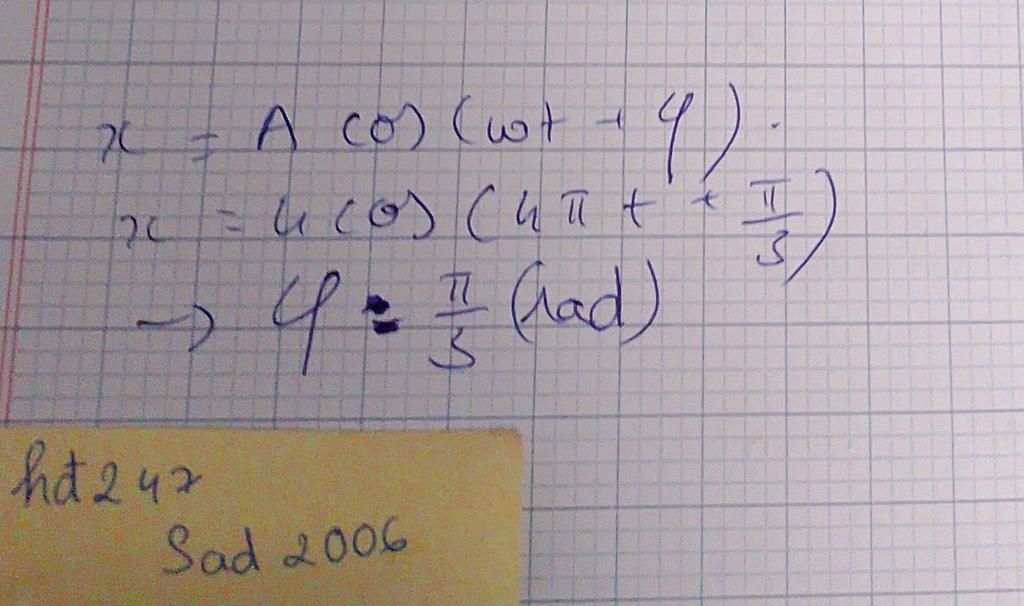 x = A cos(ωt + φ).
x = 4 cos(4πt + π/3)
→ φ = π/3 (rad)
hđ247
Sad 2006